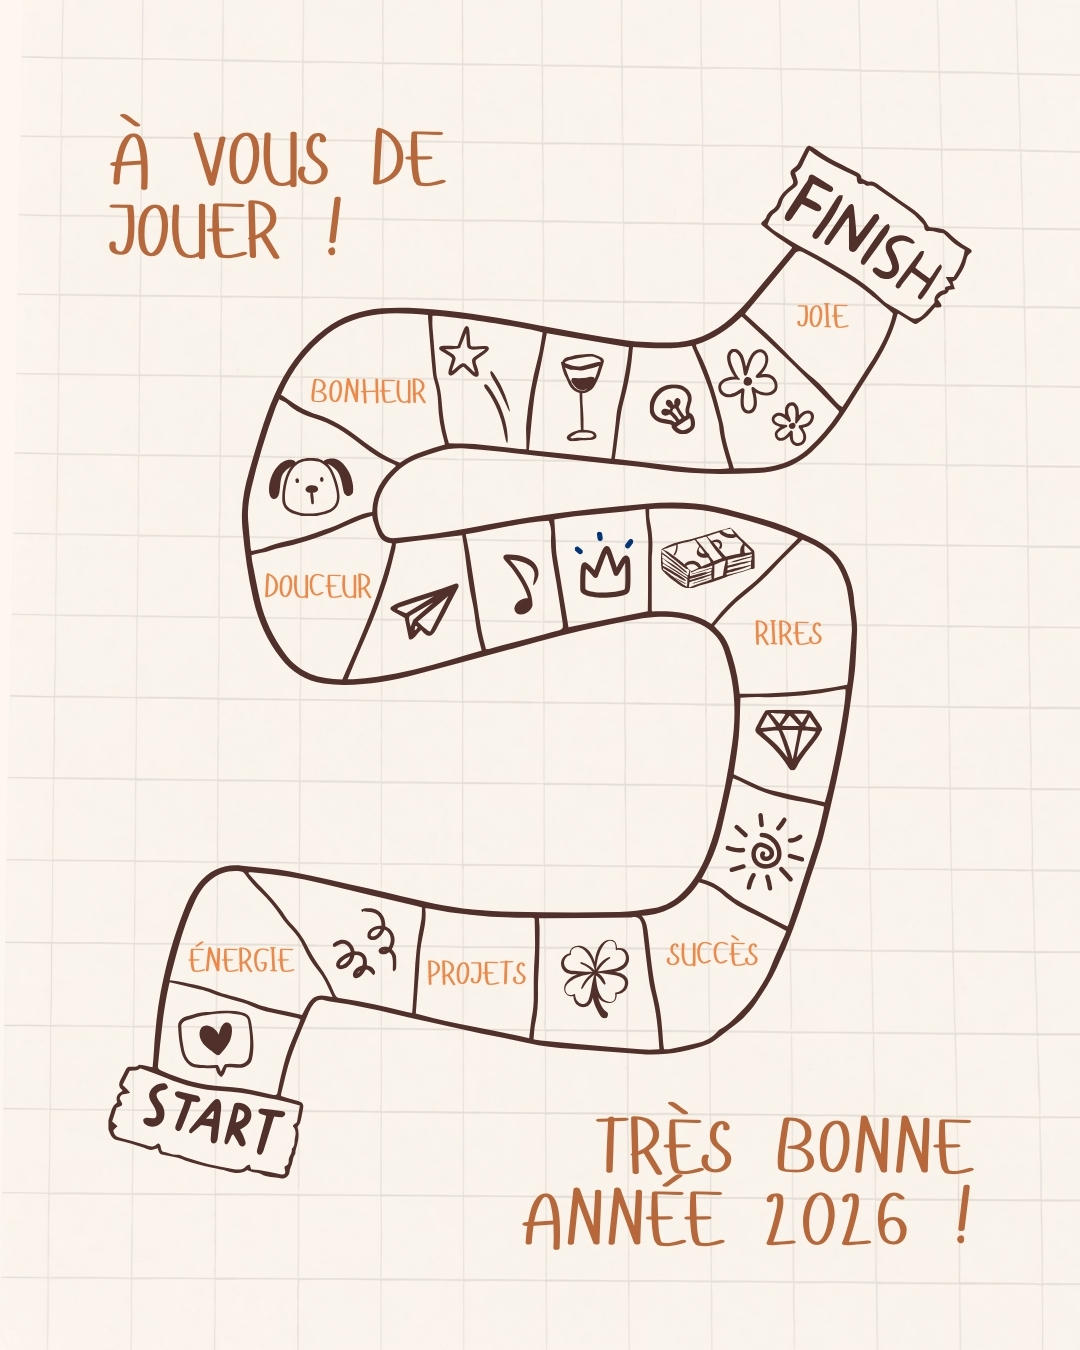 À VOUS DE
JOUER !
FINISH
JOIE
BONHEUR
DOUCEUR
RIRES
ÉNERGIE
PROJETS
SUCCÈS
START
TRÈS BONNE
ANNÉE 2026 !